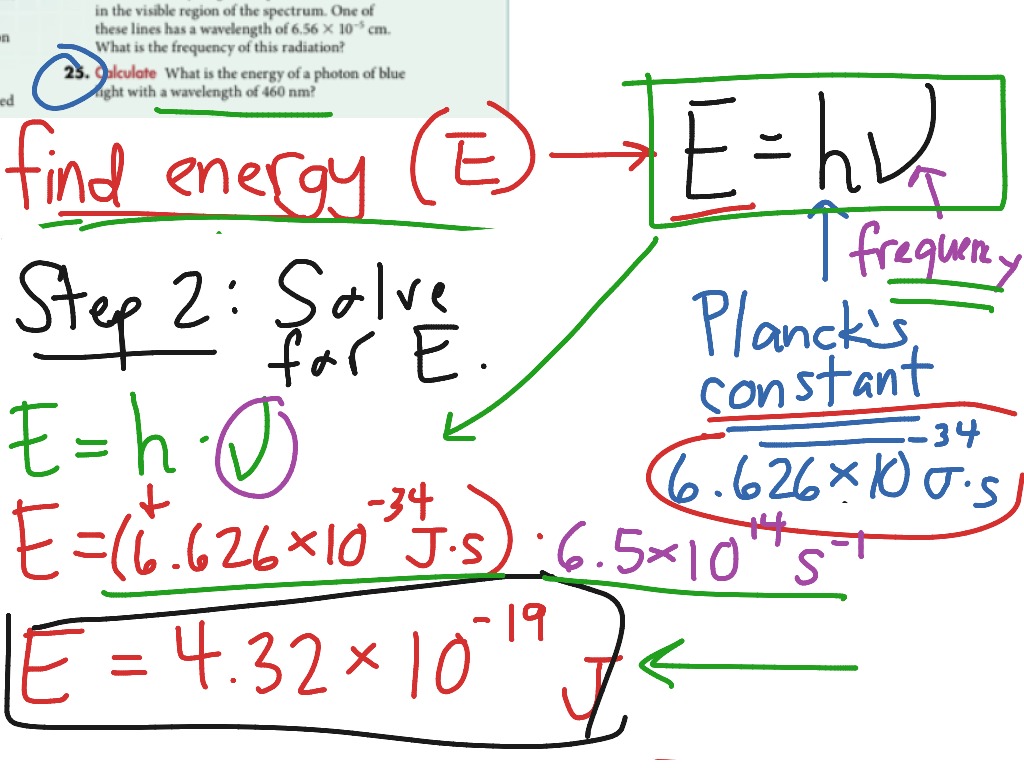 in the visible region of the spectrum. One of
these lines has a wavelength of 6.56 × 10⁻⁵ cm.
What is the frequency of this radiation?
25. Calculate What is the energy of a photon of blue
light with a wavelength of 460 nm?
n
ed
find energy (E) → E = hν
frequency
Planck's
constant
6.626 × 10⁻³⁴ J·s
Step 2: Solve
for E.
E = h · ν
E = (6.626 × 10⁻³⁴ J·s) · 6.5 × 10¹⁴ s⁻¹
E = 4.32 × 10⁻¹⁹ J